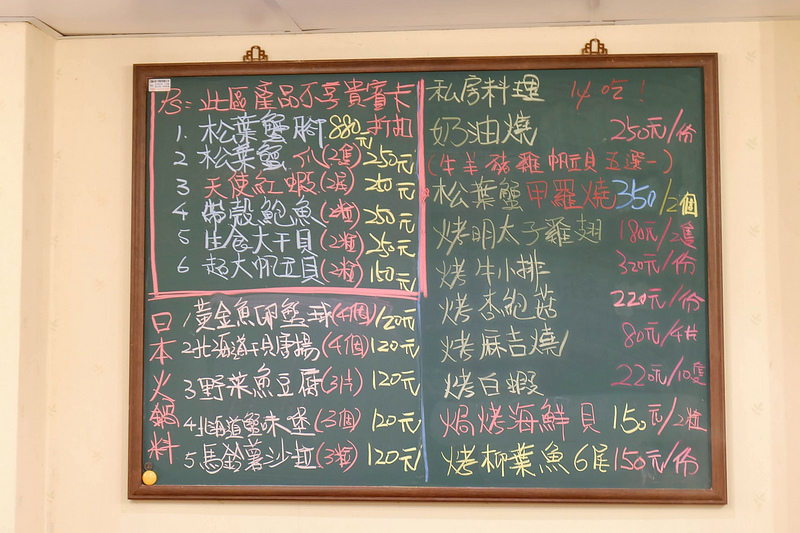 PS:此區產品不享貴賓卡
折扣
1. 松葉蟹腳 880元
2 松葉蟹爪(2隻) 250元
3 天使紅蝦(2尾) 250元
4 帶殼鮑魚(2粒) 250元
5 生食大干貝(2粒) 250元
6 超大帆立貝(2粒) 150元
日本火鍋料
1 黃金魚卵蟹球(4個) 120元
2 北海道干貝唐揚(4個) 120元
3 野菜魚豆腐(3片) 120元
4 北海道蟹味堡(3個) 120元
5. 馬鈴薯沙拉(3粒) 120元
私房料理 吃!
奶油燒 250元/份
(牛羊豬雞帆立貝五選一)
松葉蟹甲羅燒 350/2個
烤明太子雞翅 180元/2隻
烤牛小排 320元/份
烤杏鮑菇 220元/份
烤麻吉燒 80元/4片
烤白蝦 220元/10隻
焗烤海鮮貝 150元/2粒
烤柳葉魚6尾 150元/份